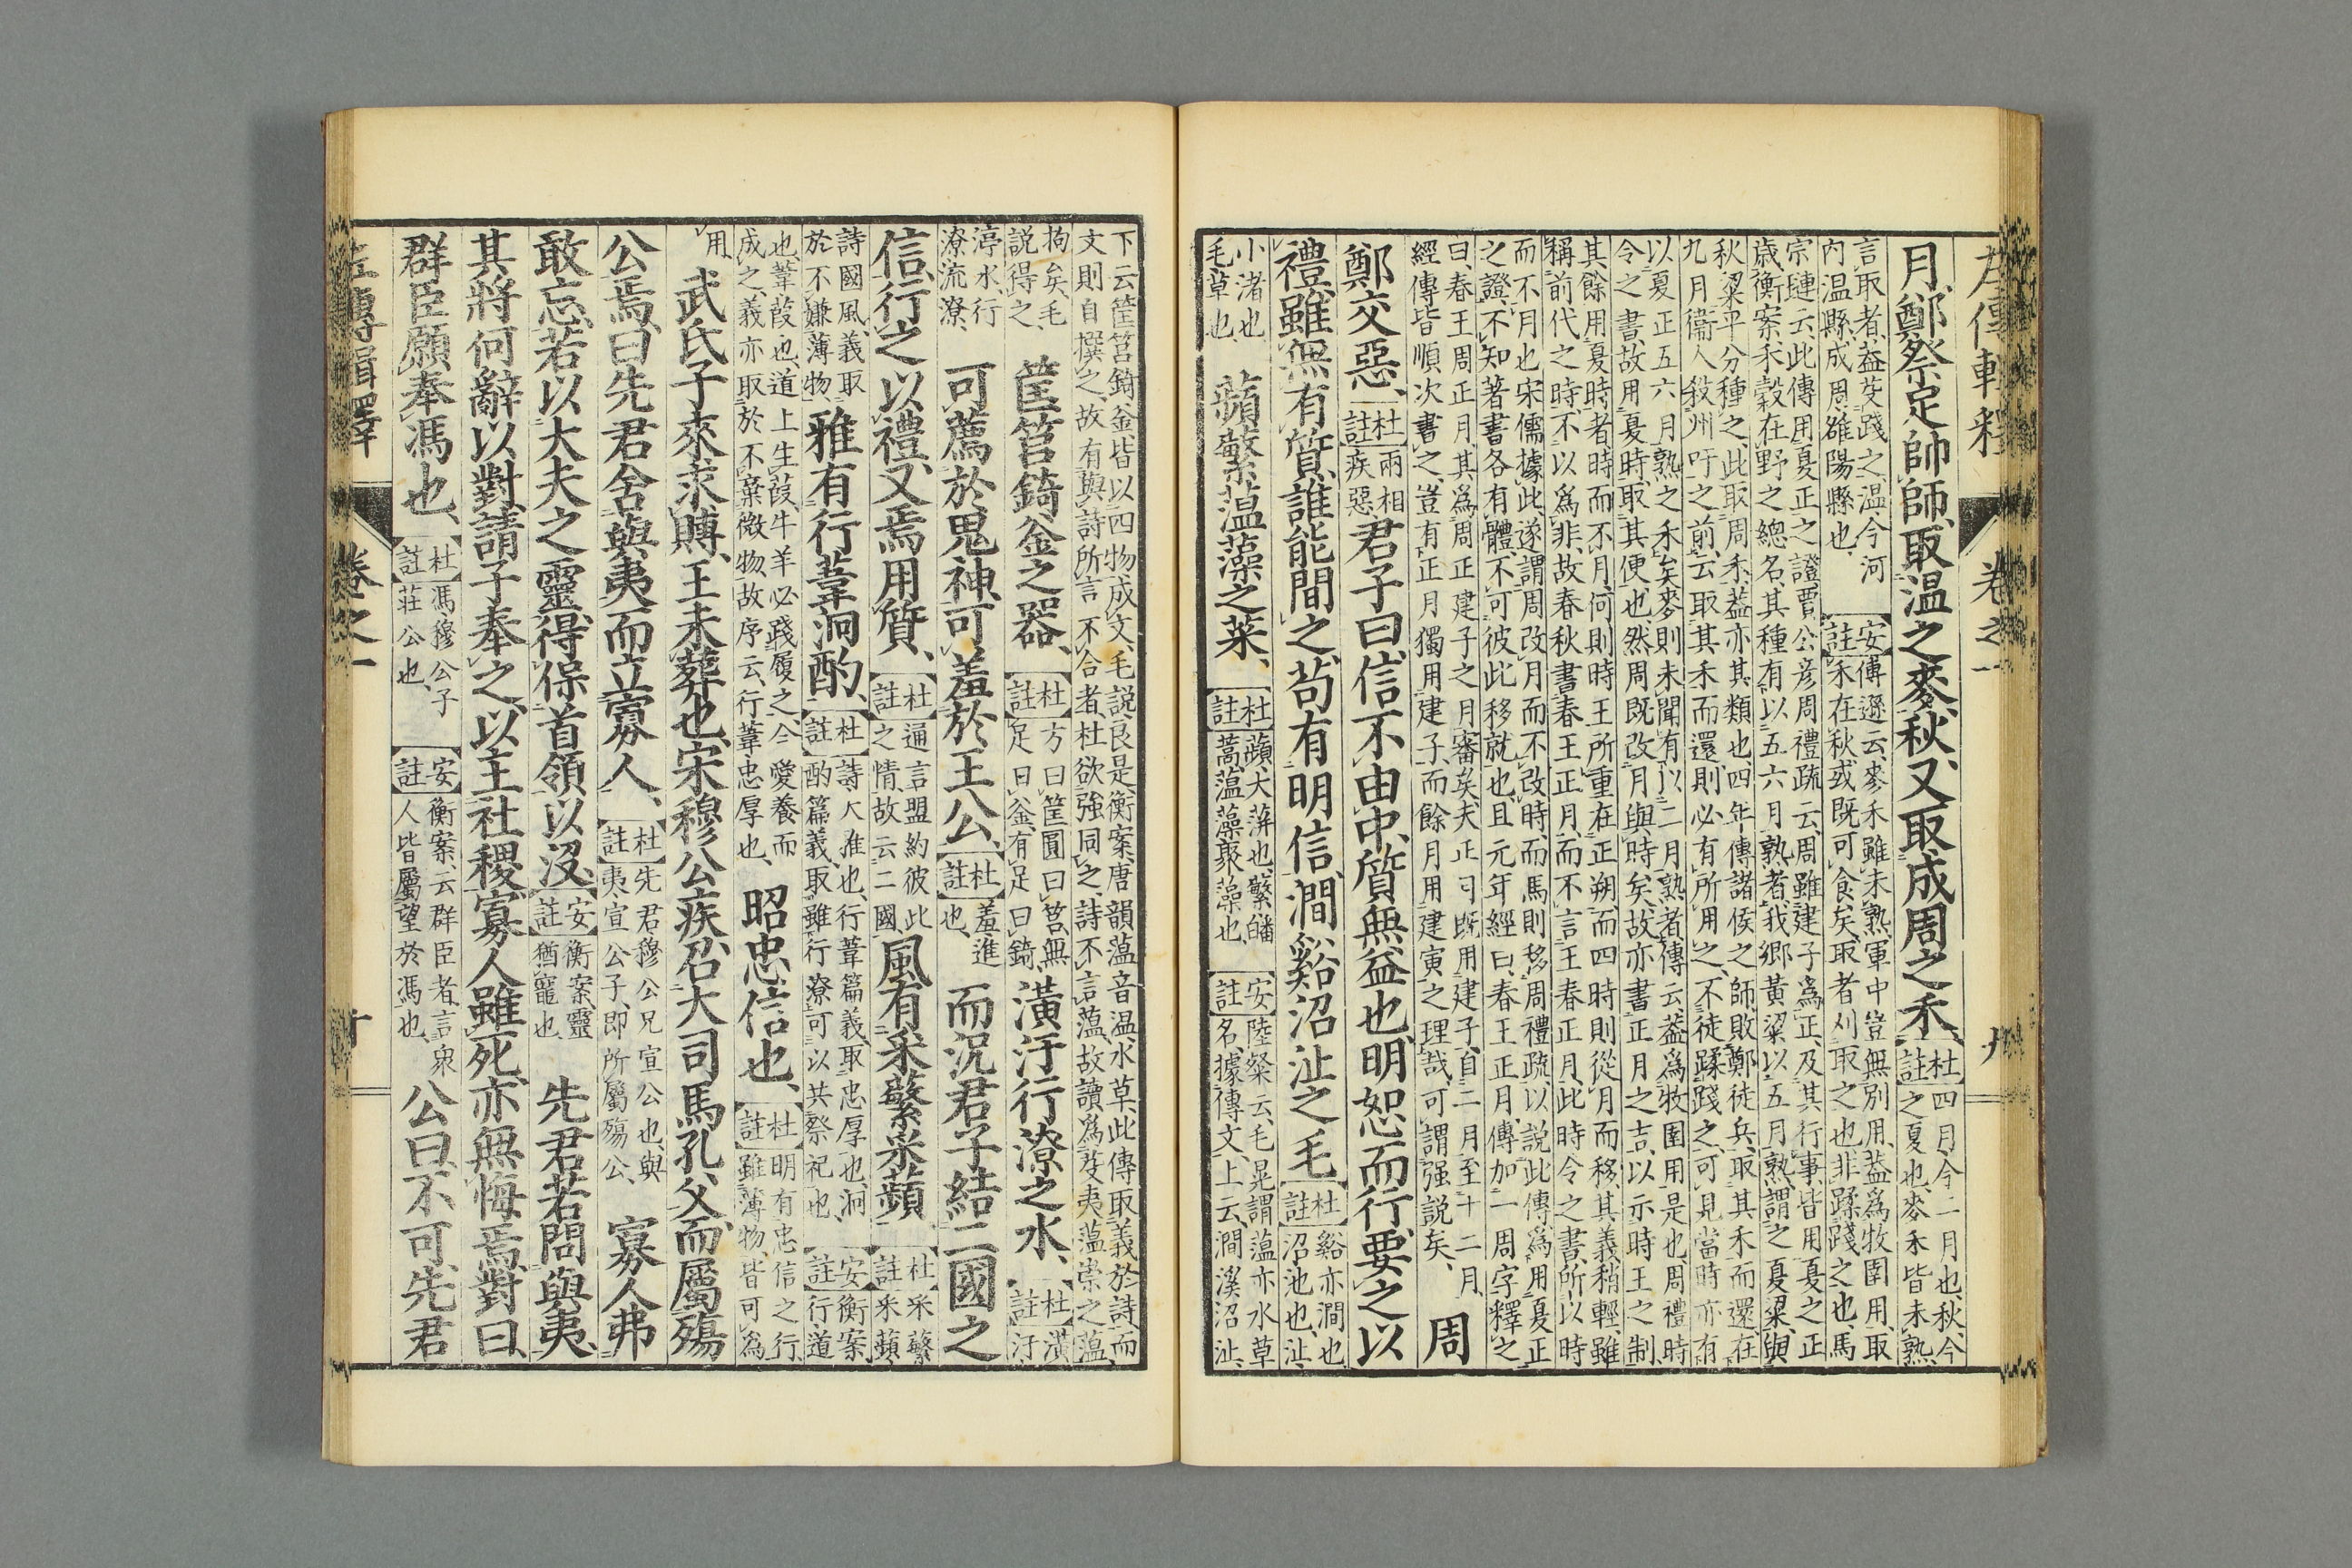 左傳輯釋 卷之一 九
月、鄭祭足帥師、取温之麥、秋、又取成周之禾、杜註四月、今二月也、秋、今之夏也、麥禾皆未熟、
言取者、蓋芟踐之、温今河内温縣、成周雒陽縣也、安註傅遜云、麥禾雖未熟、軍中豈無別用、蓋爲牧圉用、取禾在秋、或既可食矣、取者刈取之也、非蹂踐之也、馬
宗璉云、此傳用夏正之證、賈公彦周禮疏云、周雖建子爲正、及其行事、皆用夏之正歲、衡案、禾穀在野之總名、其種有以五六月熟者、我鄉黄粱以五月熟、謂之夏粱、與
秋粱平分種之、此取周禾、蓋亦其類也、四年傳諸侯之師、敗鄭徒兵、取其禾而還、在九月衞人殺州吁之前、云取其禾而還、則必有所用之、不徒蹂踐之、可見當時亦有
以夏正五六月熟之禾矣、麥則未聞有以二月熟者、傳云、蓋爲牧圉用是也、周禮時令之書、故用夏時、取其便也、然周既改月與時矣、故亦書正月之吉、以示時王之制、
其餘用夏時者、時而不月、何則時王所重在正朔、而四時則從月而移、其義稍輕、雖稱前代之時、不以爲非、故春秋書春王正月、而不言王春正月、此時令之書、所以時
而不月也、宋儒據此、遂謂周改月而不改時、而馬則移周禮疏、以説此傳、爲用夏正之證、不知著書各有體、不可彼此移就也、且元年經曰、春王正月、傳加一周字釋之
曰、春王周正月、其爲周正建子之月審矣、夫正月既用建子、自二月至十二月、經傳皆順次書之、豈有正月獨用建子、而餘月用建寅之理哉、可謂强説矣、周
鄭交惡、杜註兩相疾惡、君子曰、信不由中、質無益也、明恕而行、要之以
禮、雖無有質、誰能間之、苟有明信、澗谿沼沚之毛、杜註谿亦澗也、沼池也、沚
小渚也、毛草也、蘋蘩薀藻之菜、杜註蘋大蓱也、蘩皤蒿、薀藻聚藻也、安註陸粲云、毛晃謂薀亦水草名、據傳文、上云、澗溪沼沚、
下云筐筥錡釜、皆以四物成文、毛説良是、衡案、唐韻薀音温、水草、此傳取義於詩、而文則自撰之、故有與詩所言不合者、杜欲強同之、詩不言薀、故讀爲芟夷薀崇之薀、
拘矣、毛説得之、筐筥錡釜之器、杜註方曰筐、圓曰筥、無足曰釜、有足曰錡、潢汙行潦之水、杜註潢汙
渟水、行潦流潦、可薦於鬼神、可羞於王公、杜註羞進也、而況君子結二國之
信、行之以禮、又焉用質、杜註通言盟約彼此之情、故云二國、風有采蘩采蘋杜註采蘩采蘋
詩國風、義取於不嫌薄物、雅有行葦泂酌、杜註詩大雅也、行葦篇義取忠厚也、泂酌篇義、取雖行潦可以共祭祀也、安註衡案、行道
也、葦葭也、道上生葭、牛羊必踐履之、今愛養而成之、義亦取於不棄微物、故序云、行葦忠厚也、昭忠信也、杜註明有忠信之行、雖薄物、皆可爲
用、武氏子來求賻、王未葬也、宋穆公疾、召大司馬孔父、而屬殤
公焉、曰、先君舍與夷而立寡人、杜註先君穆公兄宣公也、與夷宣公子、即所屬殤公、寡人弗
敢忘、若以大夫之靈、得保首領以沒、安註衡案、靈猶寵也、先君若問與夷、
其將何辭以對、請子奉之、以主社稷、寡人雖死、亦無悔焉、對曰、
群臣願奉馮也、杜註馮穆公子莊公也、安註衡案、云群臣者、言衆人皆屬望於馮也、公曰、不可、先君
左傳輯釋 卷之一 十